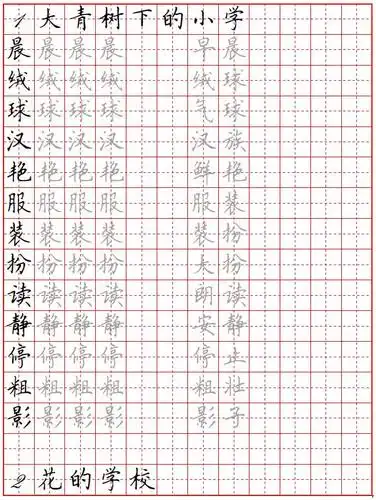 1 大青树下的小学
晨晨晨晨 早晨
绒绒绒绒 绒球
球球球球 气球
汉汉汉汉 汉族
艳艳艳艳 鲜艳
服服服服 服装
装装装装 装扮
扮扮扮扮 打扮
读读读读 朗读
静静静静 安静
停停停停 停止
粗粗粗粗 粗壮
影影影影 影子
2 花的学校